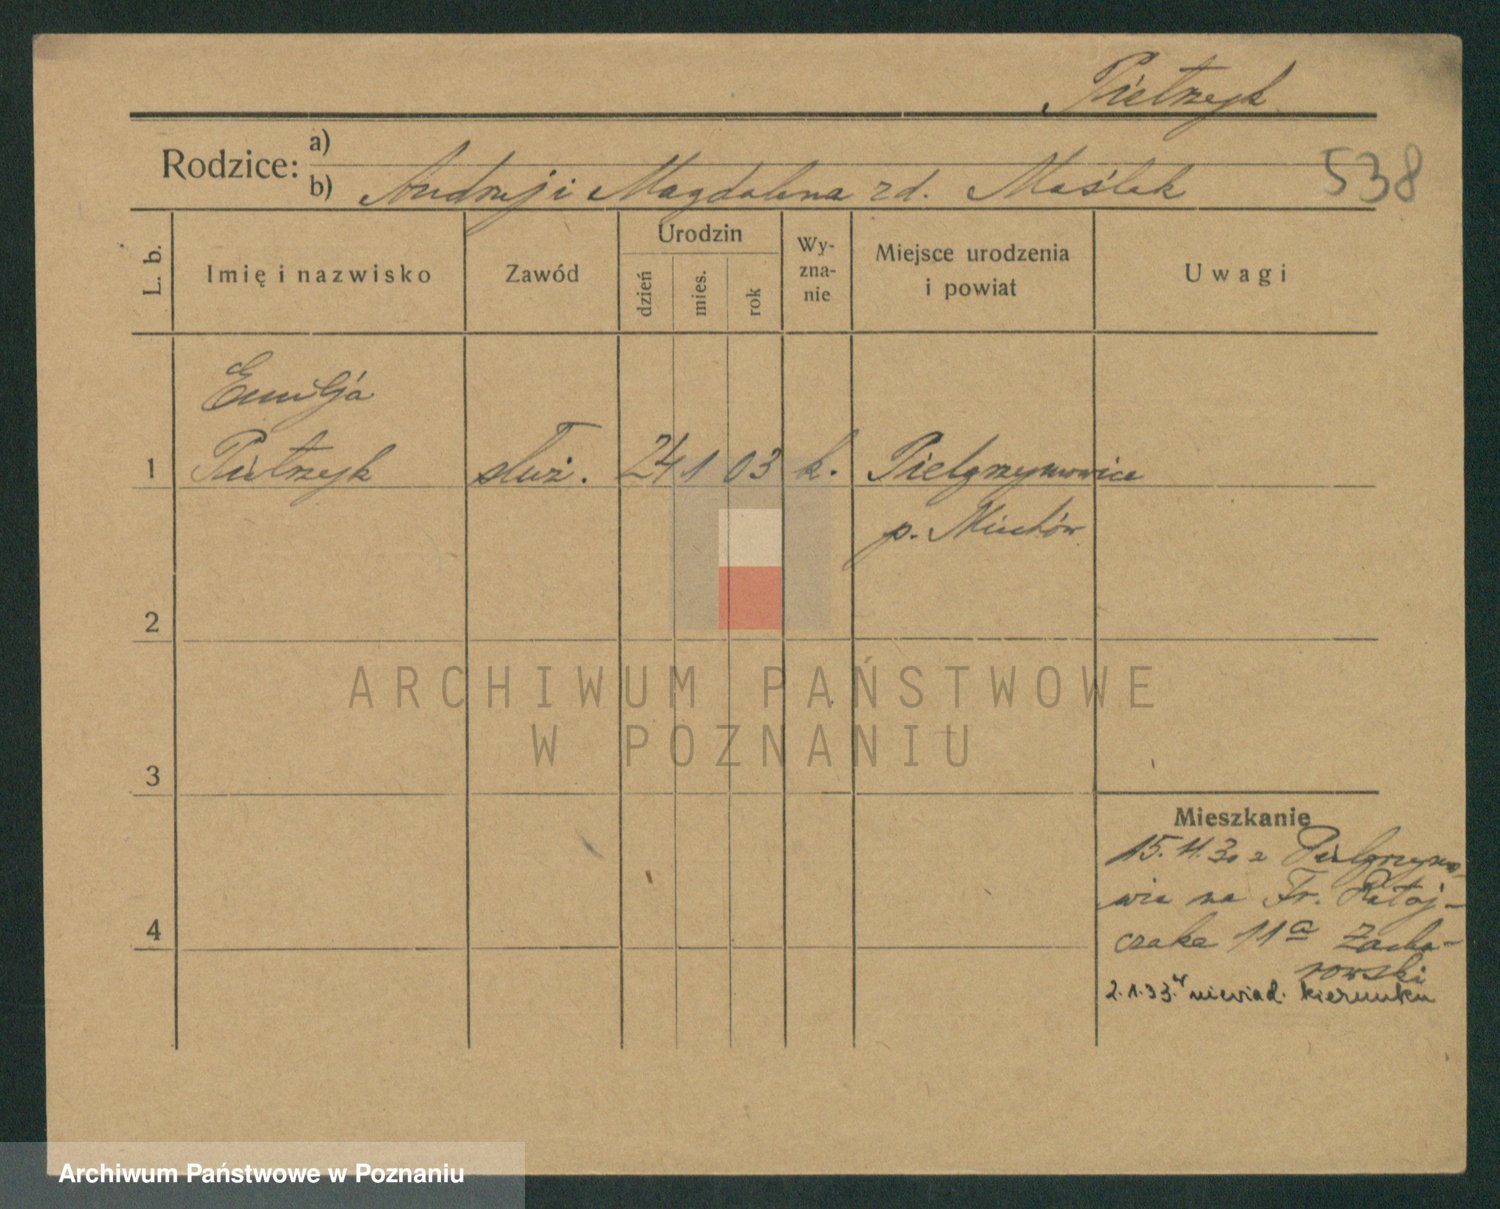 Pietrzyk
Rodzice: a)
b) Andrzej i Magdalena zd. Maślak
538
L. b.
Imię i nazwisko
Zawód
Urodzin
dzień
mies.
rok
Wy-
zna-
nie
Miejsce urodzenia
i powiat
Uwagi
Emilja
1 Pietrzyk służ. 24 1 03 k. Pielgrzymowice
p. Miechów
2
3
4
ARCHIWUM PAŃSTWOWE
W POZNANIU
Mieszkanie
15.11.30 z Pielgrzymo-
wic na Fr. Rataj-
czaka 11a Zacha-
rowski
2.1.33. w niewiad. kierunku
Archiwum Państwowe w Poznaniu